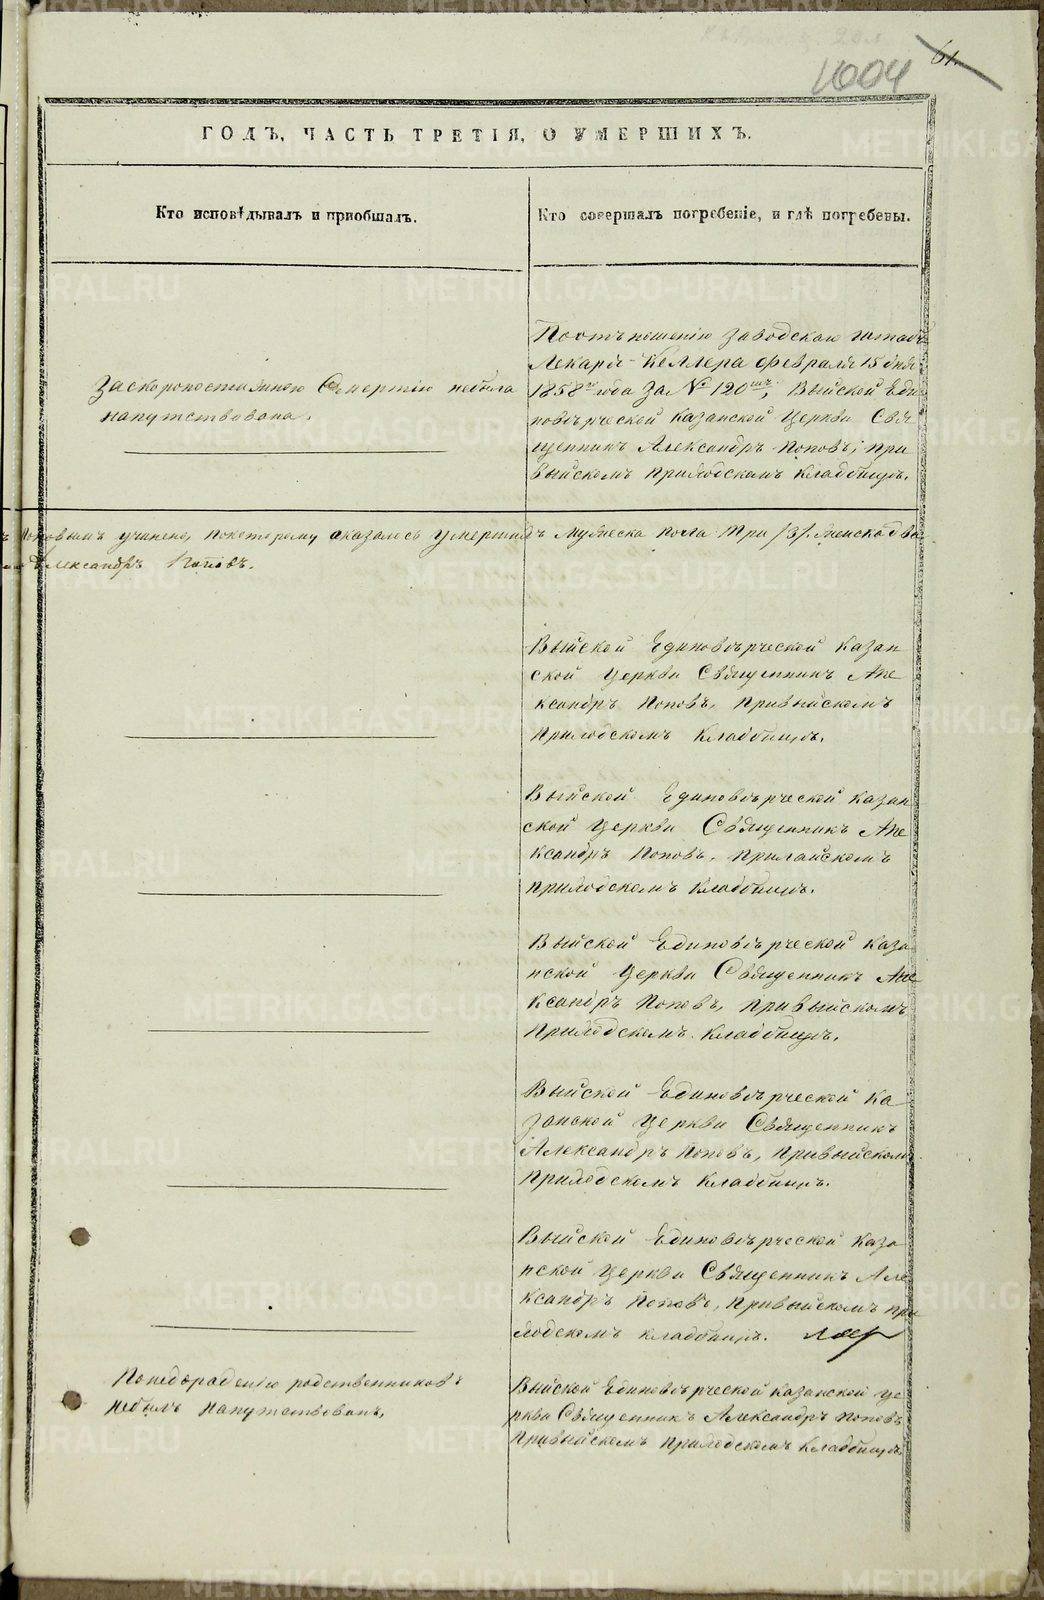 61.
1004
ГОДЪ, ЧАСТЬ ТРЕТІЯ, О УМЕРШИХЪ.
Кто исповѣдывалъ и приобщалъ.
Кто совершалъ погребеніе, и гдѣ погребены.
За скоропостижною Смертію небыла
напутствована.
Поотъношенію заводскаго штабъ
Лекаря Келлера февраля 15 дня
1858го года За № 120мъ, Выйской Еди
новѣрческой Казанской Церкви Свя
щенникъ Александръ Поповъ; при
Выйскомъ Приходскомъ Кладбищѣ.
Поповымъ учинено, покоторому оказалось умершихъ мужеска пола три /3/ женска два
Александръ Поповъ.
Выйской Единовѣрческой Казан
ской Церкви Священникъ Але
ксандръ Поповъ, Привыйскомъ
Приходскомъ Кладбищѣ.
Выйской Единовѣрческой Казан
ской Церкви Священникъ Але
ксандръ Поповъ,
приходскомъ Кладбищѣ.
Выйской Единовѣрческой Каза
нской Церкви Священникъ Але
ксандръ Поповъ, Привыйскомъ
Приходскомъ Кладбищѣ.
Выйской Единовѣрческой Ка
занской Церкви Священникъ
Александръ Поповъ, Привыйскомъ
Приходскомъ Кладбищѣ.
Выйской Единовѣрческой Каза
нской Церкви Священникъ Але
ксандръ Поповъ, Привыйскомъ при
ходскомъ кладбищѣ.
Понедораденію родственниковъ
небылъ напутствованъ,
Выйской Единовѣрческой Казанской Це
ркви Священникъ Александръ Поповъ
Привыйскомъ приходскомъ Кладбищѣ
METRIKI.GASO-URAL.RU